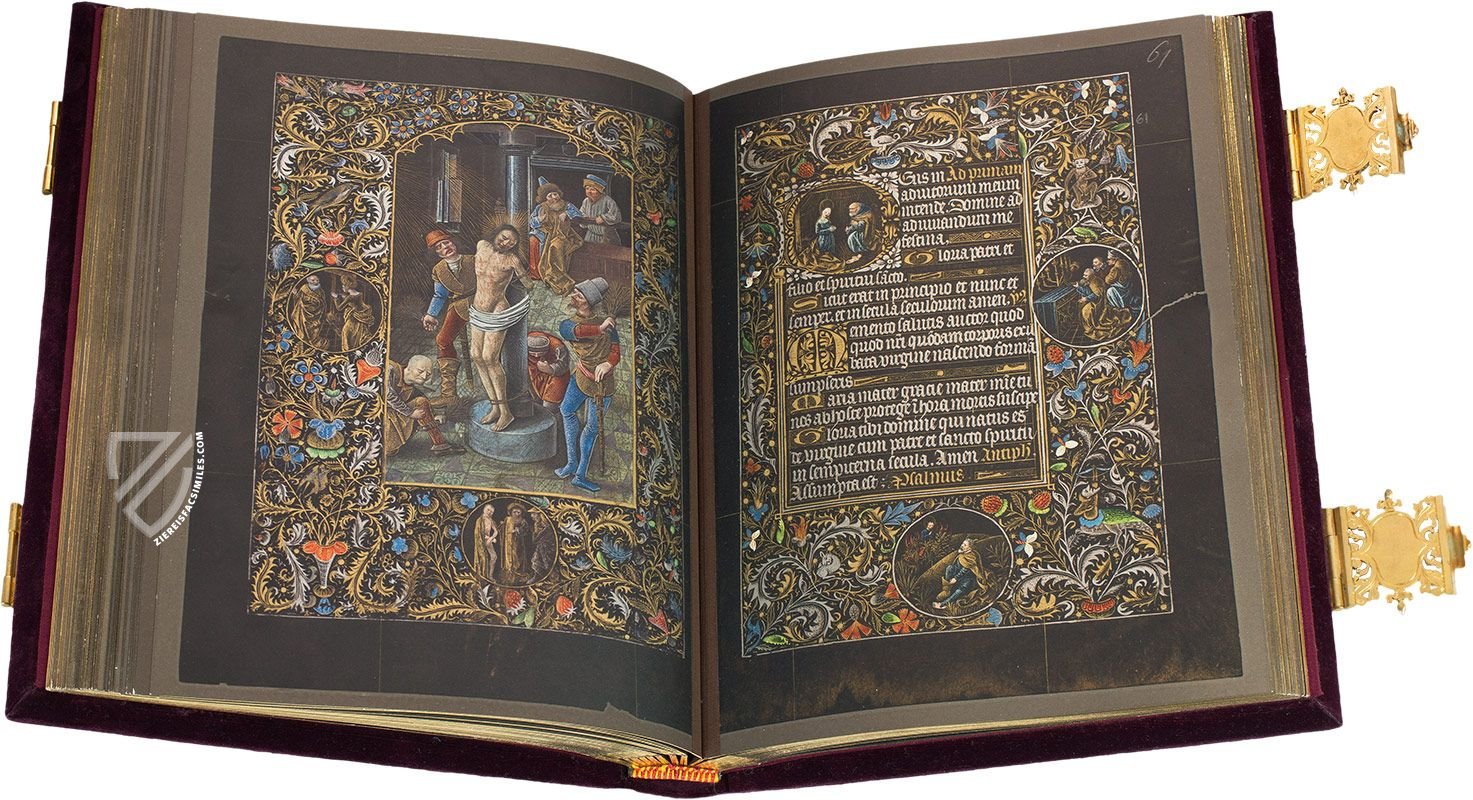 ZIEREISFACSIMILES.COM
61
61
Eus in Ad primam
adiutorium meum
intende. Domine ad
adiuuandum me
festina.
Gloria patri et
filio et spiritui sācto.
Sicut erat in principio et nunc et
semper. et in secula seculorum amen.
Memento salutis auctor quod
quod nr̄i quōdam corporis ex il
libata virgine nascendo formā
sumpseris
Maria mater gracie mater mīe tu
nos ab hoste protege ī hora mortis suscipe
Gloria tibi domine qui natus es
de virgine cum patre et sancto spiritu
in sempiterna secula. Amen Antiph
Assumpta est: Psalmus